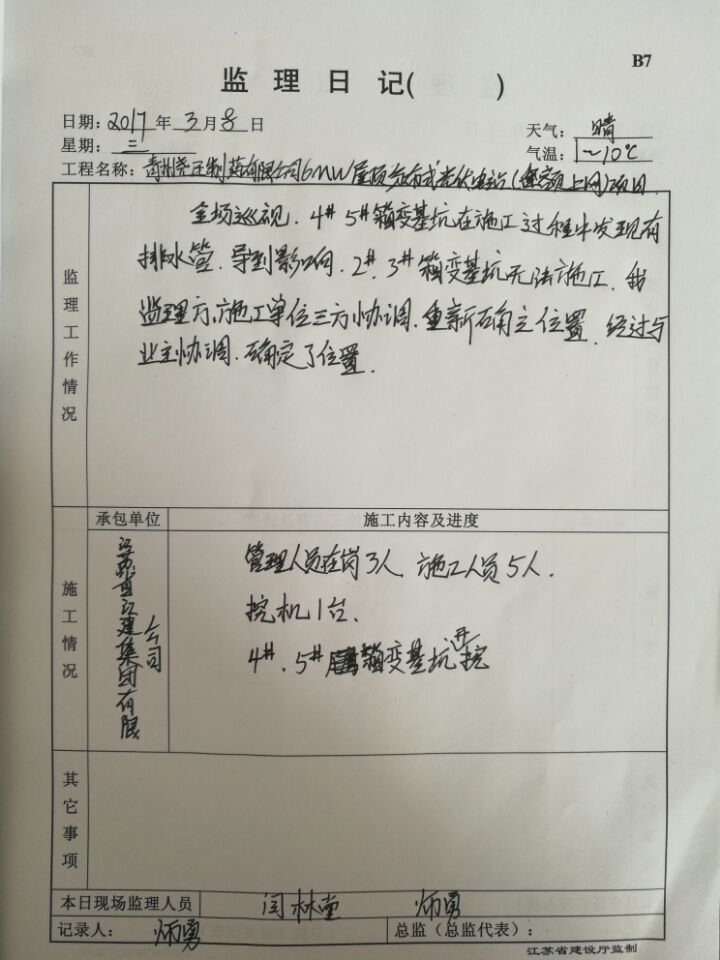 B7
监 理 日 记( )
日期: 2017 年 3 月 8 日
天气: 晴
星期: 三
气温: 1~10℃
工程名称: 青州尧王制药有限公司6MW屋顶分布式光伏电站(全额上网)项目
监理工作情况
全场巡视.4# 5#箱变基坑在施工过程中发现有
排水管.导到影响.2#.3#箱变基坑无法施工.我
监理方.施工单位三方协调.重新确定位置.经过与
业主协调.确定了位置.
承包单位
施工内容及进度
施工情况
江苏省江建集团有限
公司
管理人员在岗3人.施工人员5人.
挖机1台.
4#.5#箱变基坑开挖
其它事项
本日现场监理人员
闫林堂 师勇
记录人: 师勇
总监(总监代表):
江苏省建设厅监制